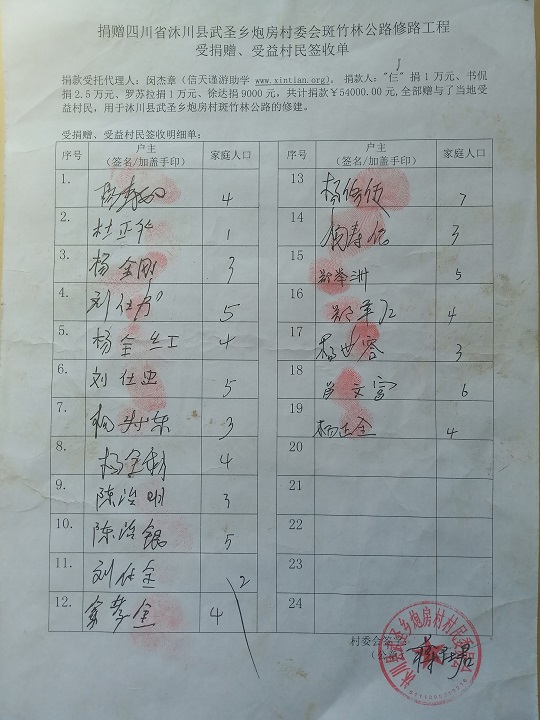 捐赠四川省沐川县武圣乡炮房村委会斑竹林公路修路工程
受捐赠、受益村民签收单
捐款受托代理人：闵杰章（信天谨游助学 www.xintian.org），捐款人：“仨”捐1万元、书侃
捐2.5万元、罗苏拉捐1万元、徐达捐9000元，共计捐款￥54000.00元,全部赠与了当地受
益村民，用于沐川县武圣乡炮房村斑竹林公路的修建。
受捐赠、受益村民签收明细单：
序号 户主（签名/加盖手印） 家庭人口
1. 4
2. 杜正华 1
3. 杨金刚 3
4. 刘仕 5
5. 杨全红 4
6. 刘仕 5
7. 杨 东 3
8. 杨 4
9. 陈治明 3
10. 陈治银 5
11. 刘仕全 2
12. 金 4
序号 户主（签名/加盖手印） 家庭人口
13 杨 7
14 3
15 洲 5
16 4
17 杨世容 3
18 肖文富 6
19 杨正全 4
20
21
22
23
24
村委会签
（公
沐川县武圣乡炮房村村民委员会